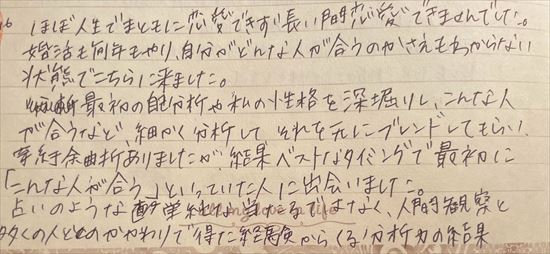 ほぼ人生でまともに恋愛できず長い間恋愛できませんでした。
婚活も何年もやり、自分がどんな人が合うのかさえもわからない
状態でこちらに来ました。
最初の自己分析や私の性格を深堀りし、こんな人
が合うなど、細かく分析して それを元にブレンドしてもらい、
紆余曲折ありましたが、結果ベストなタイミングで最初に
「こんな人が合う」といっていた人に出会いました。
占いのような 単純な当たるではなく、人間観察と
多くの人とのかかわりで得た経験からくる分析力の結果